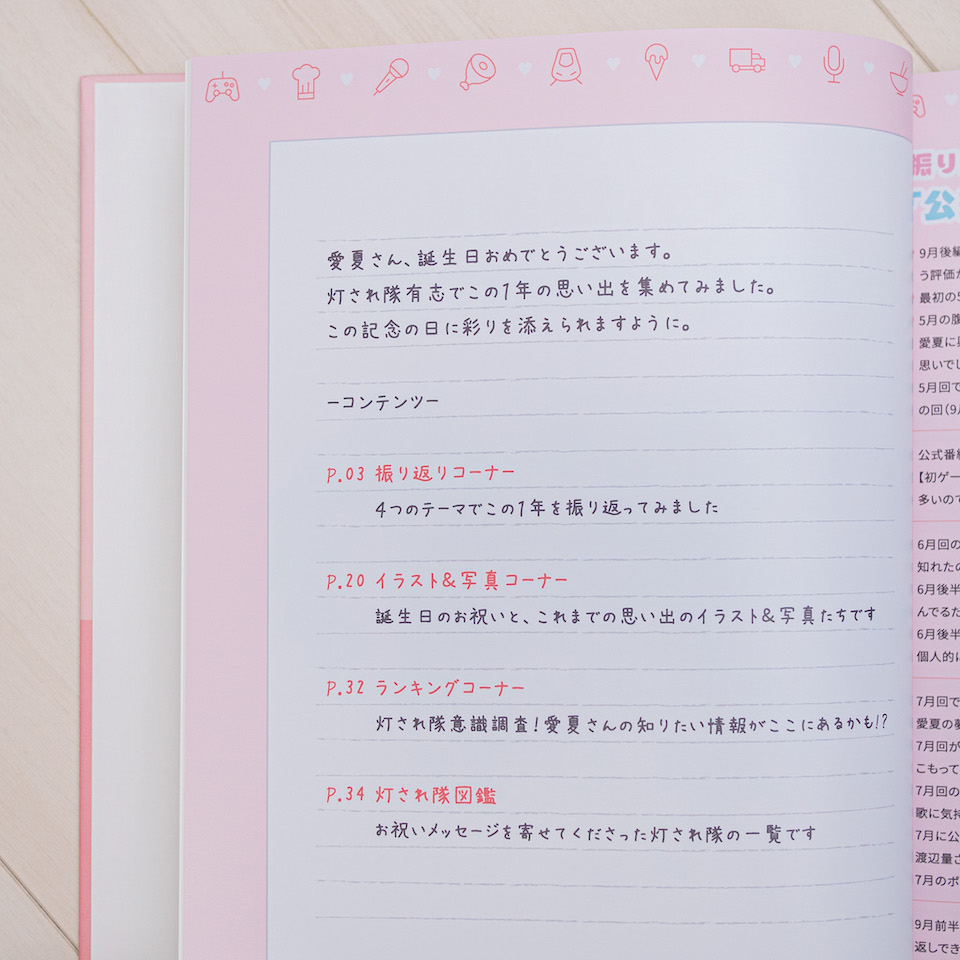 愛夏さん、誕生日おめでとうございます。
灯され隊有志でこの1年の思い出を集めてみました。
この記念の日に彩りを添えられますように。
ーコンテンツー
P.03 振り返りコーナー
4つのテーマでこの1年を振り返ってみました
P.20 イラスト&写真コーナー
誕生日のお祝いと、これまでの思い出のイラスト&写真たちです
P.32 ランキングコーナー
灯され隊意識調査！愛夏さんの知りたい情報がここにあるかも!?
P.34 灯され隊図鑑
お祝いメッセージを寄せてくださった灯され隊の一覧です
振り
公
9月後編
う評価
最初の5
5月の腹
愛夏に
思いでし
5月回で
の回(9
公式番
【初ゲー
多いので
6月回の
知れたの
6月後半
んでるた
6月後半
個人的に
7月回で
愛夏の
7月回が
こもって
7月回の
歌に気持
7月に公
渡辺量さ
7月のボ
9月前半
返しでき